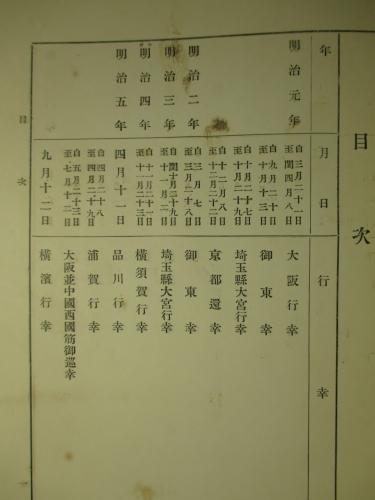 目次
年 月日 行幸
明治元年 自三月二十一日至閏四月八日 大阪行幸
自九月二十日至十月十三日 御東幸
自十月二十七日至十月二十九日 埼玉縣大宮行幸
自十二月八日至十二月二十二日 京都還幸
明治二年 自三月七日至三月二十八日 御東幸
明治三年 自閏十月二十八日至十一月二日 埼玉縣大宮行幸
明治四年 自十一月二十一日至十一月二十三日 橫須賀行幸
明治五年 四月十一日 品川行幸
自四月二十八日至四月二十九日 浦賀行幸
自五月二十三日至七月十二日 大阪並中國西國筋御巡幸
九月十二日 橫濱行幸
目次